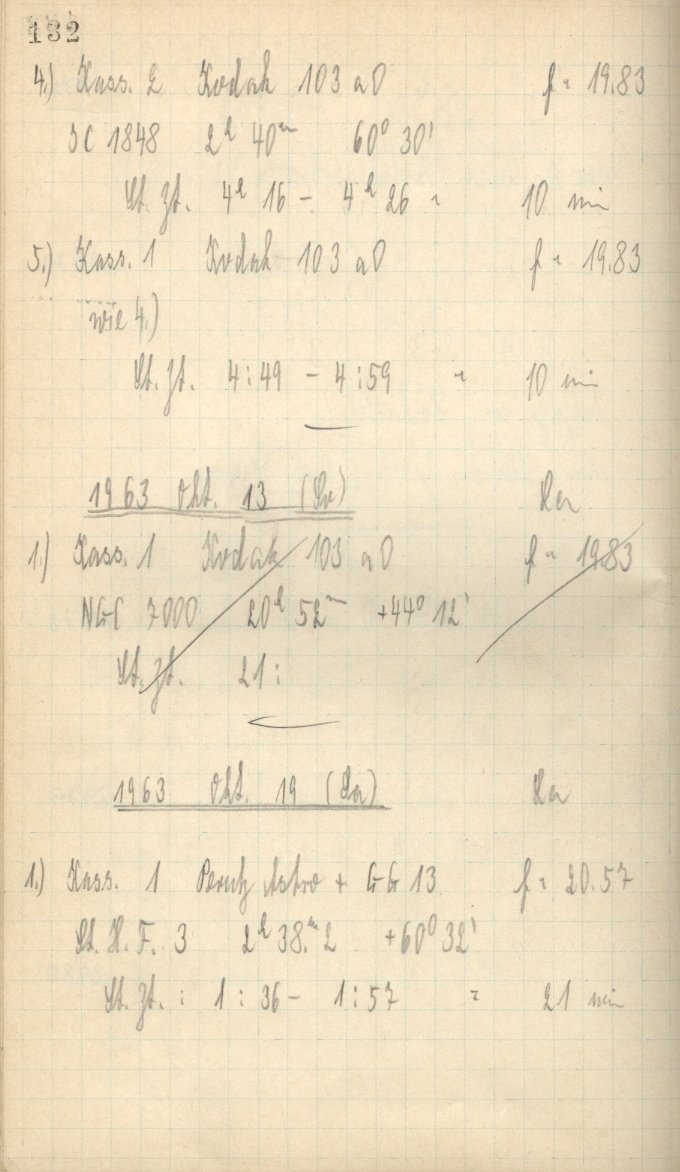 182
4.) Kass. 2 Kodak 103 aO f = 19.83
IC 1848 2h 40m 60° 30'
St. Zt. 4h 16 - 4h 26 = 10 min
5.) Kass. 1 Kodak 103 aO f = 19.83
wie 4.)
St. Zt. 4:49 - 4:59 = 10 min
1963 Okt. 13 (So)
1.) Kass. 1 Kodak 103 aO f = 19.83
NGC 7000 20h 52m +44° 12'
St. Zt. 21:
1963 Okt. 19 (Sa)
1.) Kass. 1 Perutz Astro + GG 13 f = 20.57
St. H. F. 3 2h 38.m 2 +60° 32'
St. Zt.: 1:36 - 1:57 = 21 min